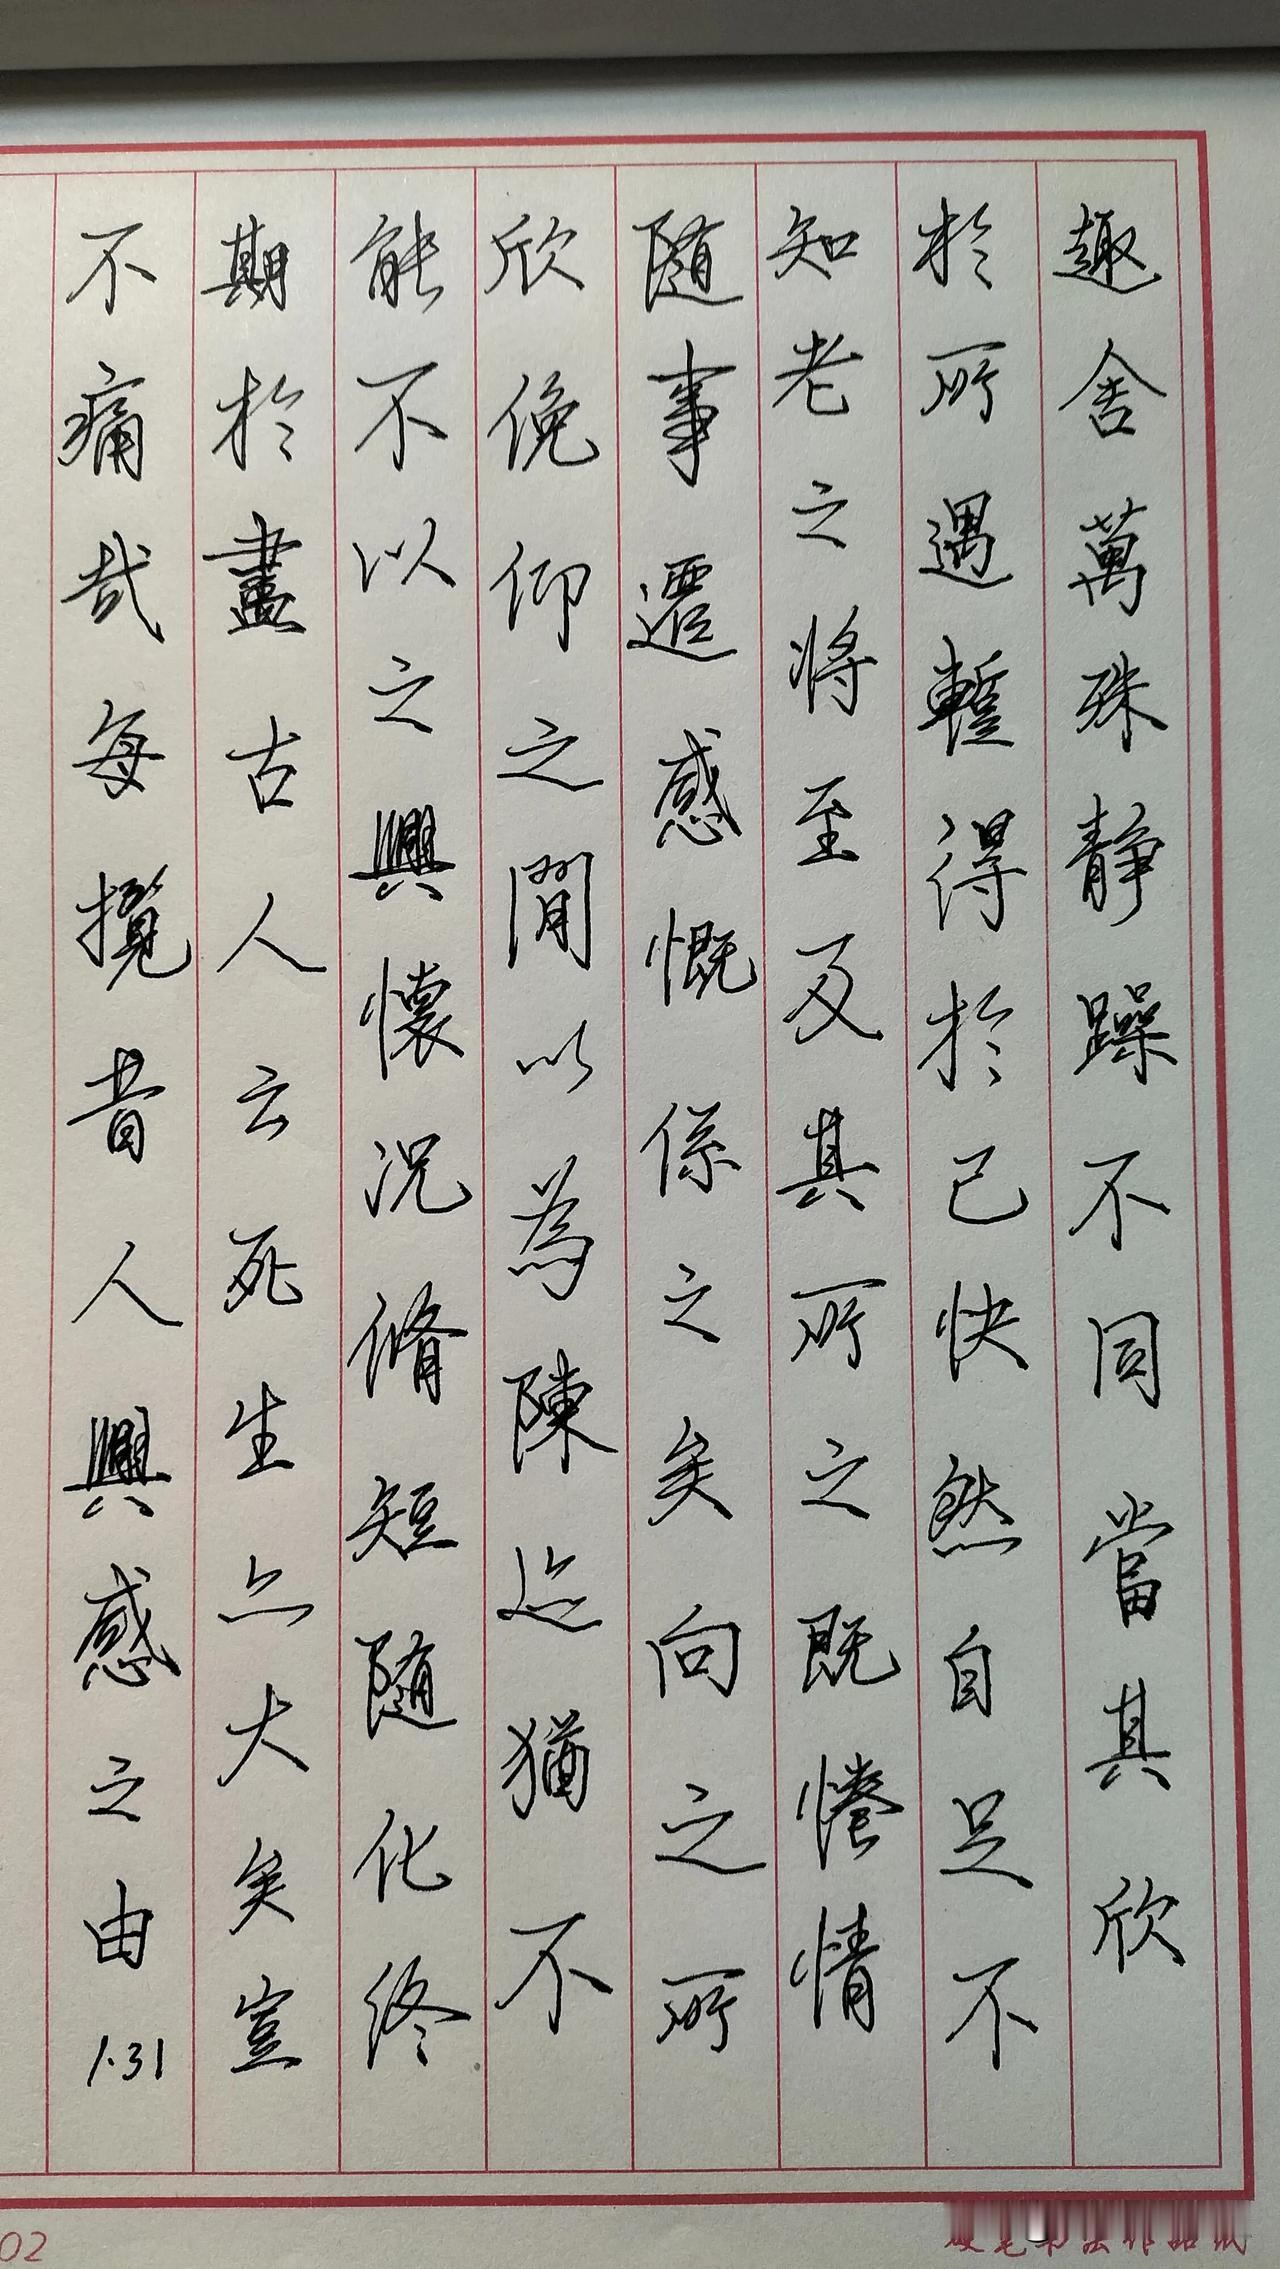 趣舍萬殊静躁不同當其欣
於所遇蹔得於己快然自足不
知老之将至及其所之既惓情
随事遷感慨係之矣向之所
欣俛仰之閒以為陳迹猶不
能不以之興懷况脩短随化終
期於盡古人云死生亦大矣豈
不痛哉每攬昔人興感之由
1.31
02
硬笔书法作品纸